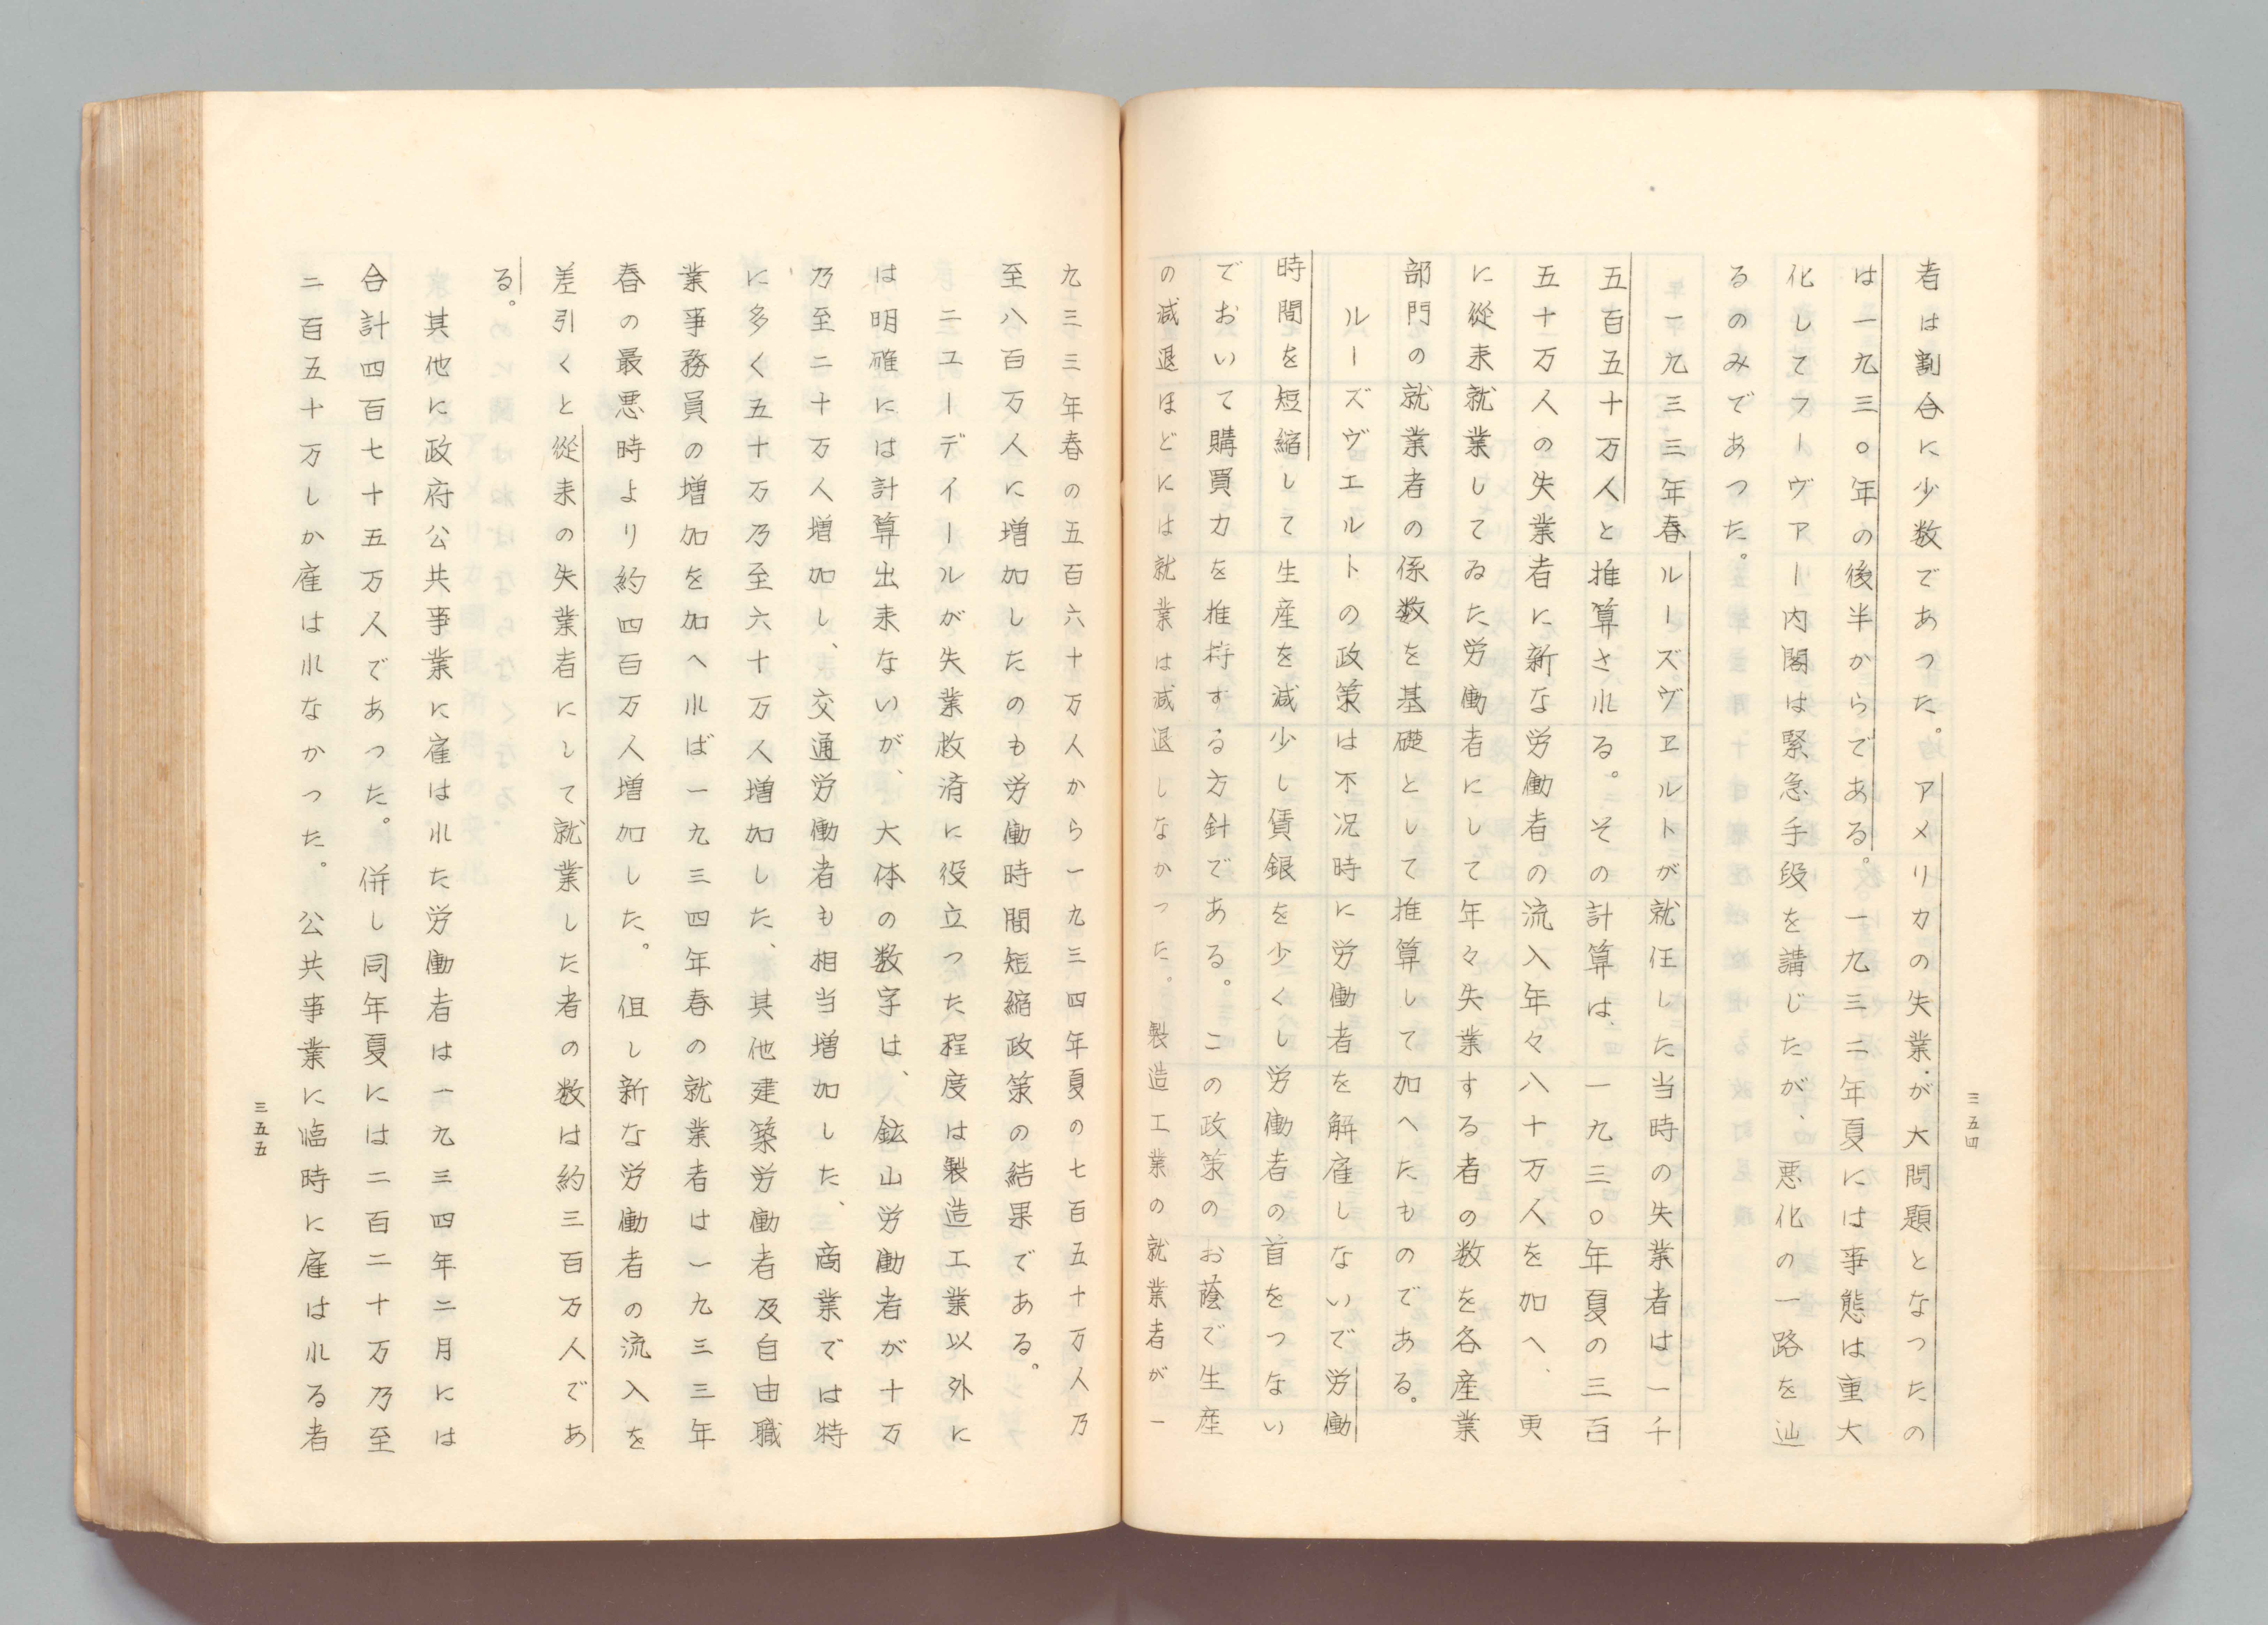 者は割合に少数であつた。アメリカの失業が大問題となつたの
は一九三〇年の後半からである。一九三二年夏には事態は重大
化してフーヴァー内閣は緊急手段を講じたが、悪化の一路を辿
るのみであつた。
一九三三年春ルーズヴェルトが就任した当時の失業者は一千
五百五十万人と推算される。その計算は、一九三〇年夏の三百
五十万人の失業者に新な労働者の流入年々八十万人を加へ、更
に従来就業してゐた労働者にして年々失業する者の数を各産業
部門の就業者の係数を基礎として推算して加へたものである。
ルーズヴエルトの政策は不況時に労働者を解雇しないで労働
時間を短縮して生産を減少し賃銀を少くし労働者の首をつない
でおいて購買力を維持する方針である。この政策のお蔭で生産
の減退ほどには就業は減退しなかつた。製造工業の就業者が一
三五四
九三三年春の五百六十万人から一九三四年夏の七百五十万人乃
至八百万人に増加したのも労働時間短縮政策の結果である。
ニユーデイールが失業救済に役立つた程度は製造工業以外に
は明確には計算出来ないが、大体の数字は、鉱山労働者が十万
乃至二十万人増加し、交通労働者も相当増加した、商業では特
に多く五十万乃至六十万人増加した、其他建築労働者及自由職
業事務員の増加を加へれば一九三四年春の就業者は一九三三年
春の最悪時より約四百万人増加した。但し新な労働者の流入を
差引くと従来の失業者にして就業した者の数は約三百万人であ
る。
其他に政府公共事業に雇はれた労働者は一九三四年二月には
合計四百七十五万人であつた。併し同年夏には二百二十万乃至
二百五十万しか雇はれなかつた。公共事業に臨時に雇はれる者
三五五